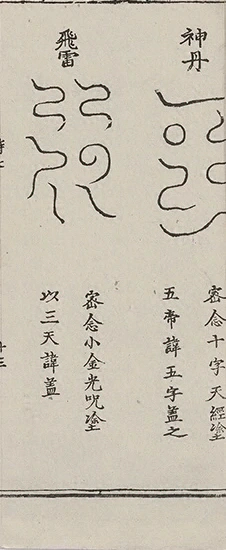 神丹
密念十字天經塗
五帝諱五字蓋之
飛雷
密念小金光咒塗
以三天諱蓋